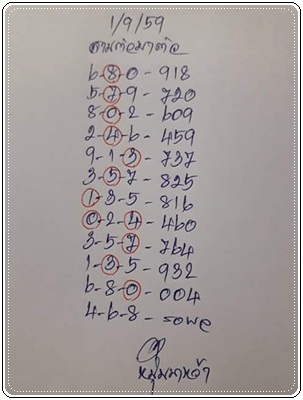 1/9/59
ตามต่อมาต่อ
6-8-0-918
5-7-9-720
8-0-2-609
2-4-6-459
9-1-3-737
3-5-7-825
1-3-5-816
0-2-4-460
3-5-7-764
1-3-5-932
6-8-0-004
4-6-8-รอผล